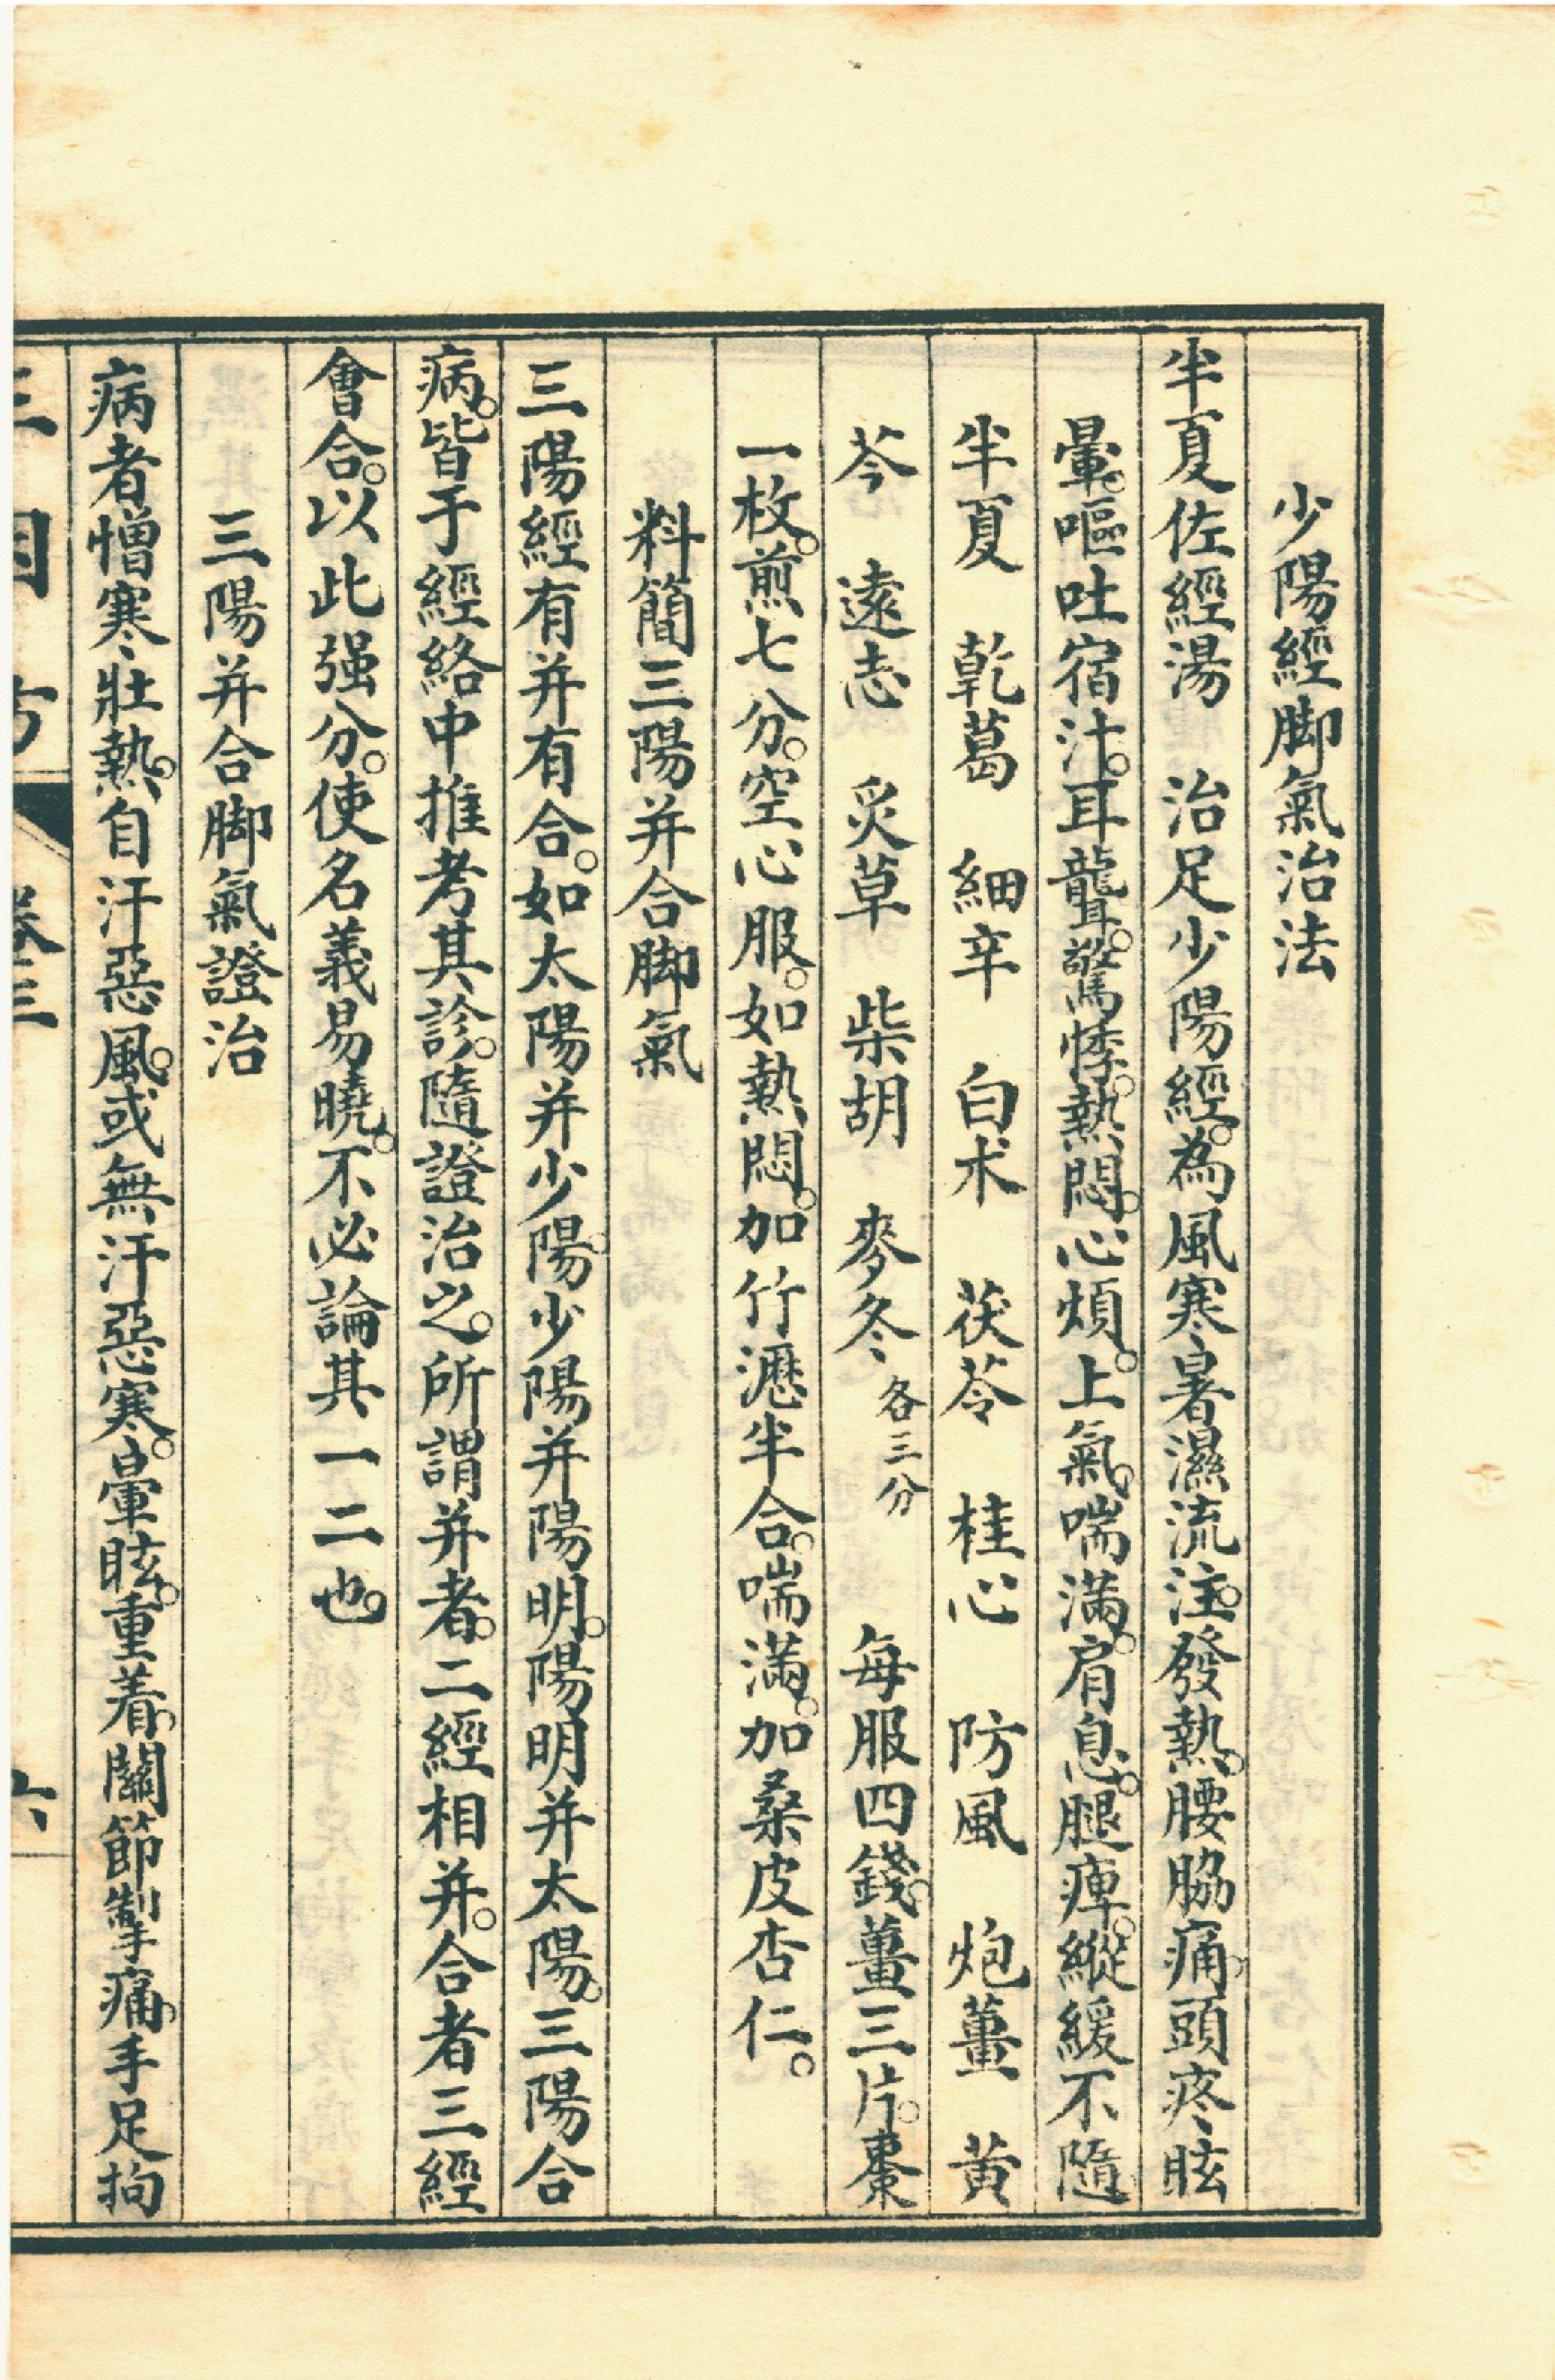 少陽經脚氣治法
半夏佐經湯　治足少陽經。為風寒暑濕流注。發熱。腰脇痛。頭疼眩
暈。嘔吐宿汁。耳聾。驚悸。熱悶。心煩。上氣。喘滿。肩息。腿痺。縱緩不隨
半夏　乾葛　細辛　白朮　茯苓　桂心　防風　炮薑　黃
芩　遠志　炙草　柴胡　麥冬各三分　每服四錢。薑三片。棗
一枚。煎七分。空心服。如熱悶。加竹瀝半合。喘滿。加桑皮杏仁。
料簡三陽并合脚氣
三陽經有并有合。如太陽并少陽。少陽并陽明。陽明并太陽。三陽合
病。皆于經絡中推考其診。隨證治之。所謂并者。二經相并。合者三經
會合。以此强分。使名義易曉。不必論其一二也。
三陽并合脚氣證治
病者憎寒壯熱。自汗惡風。或無汗惡寒。暈眩。重着。關節掣痛。手足拘
三因方　卷三　六